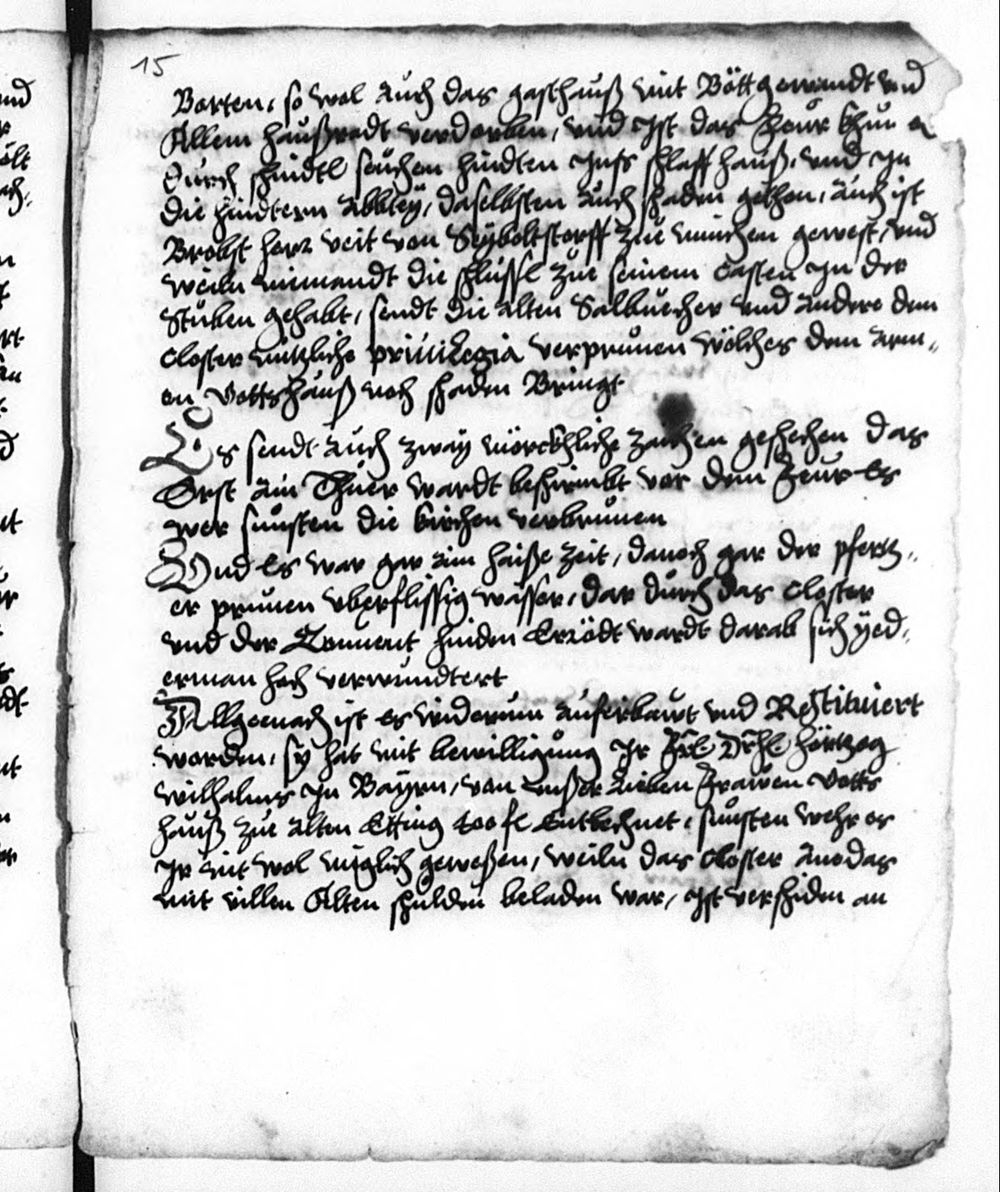 15
Borten, so wol auch das gasthauß mit Böttgewandt und
Allem haußradt verdorben, und Ist das Feur khun
Durch schindtl seuchen hindten Inß schlaffhauß, und In
die hindtern Abbtey, daselbsten auch schaden gethon, auch ist
Brobst herr veit von Seyboltstorff zue münchen gewest, und
weiln niemandt die schlüssl zue seinem Casten In der
Stuben gehabt, sendt die alten Salbuecher und andere dem
Closter nutzliche privilegia verprunen wölches dem arm„
en Gottshauß noch schaden Bringt
Es sendt auch zway mörckhliche zaichen geschechen das
Erst ain Thuer wardt beschirmbt vor dem Feur Es
wer sunsten die kirchen verbrunen
Und Es war gar ain haiße zeit, danoch gar der pfertz„
er prunen uberflissig wasser, dar durch das Closter
und der Convent hinden Errödt wardt darab sich yed„
erman hoch verwundtert
Allgemach ist es widerum auferbawt und Restituiert
worden, sy hat mit bewilligung Ir Frl Drhl hörtzog
wilhalms In Bayrn, von unßer lieben Frawen Gotts
hauß zue alten Etting 400 fl Entlechnet, sunsten wehr es
Ir nit wol miglich geweßen, weiln das Closter anodas
mit villen Alten schulden beladen war, Ist verschiden an